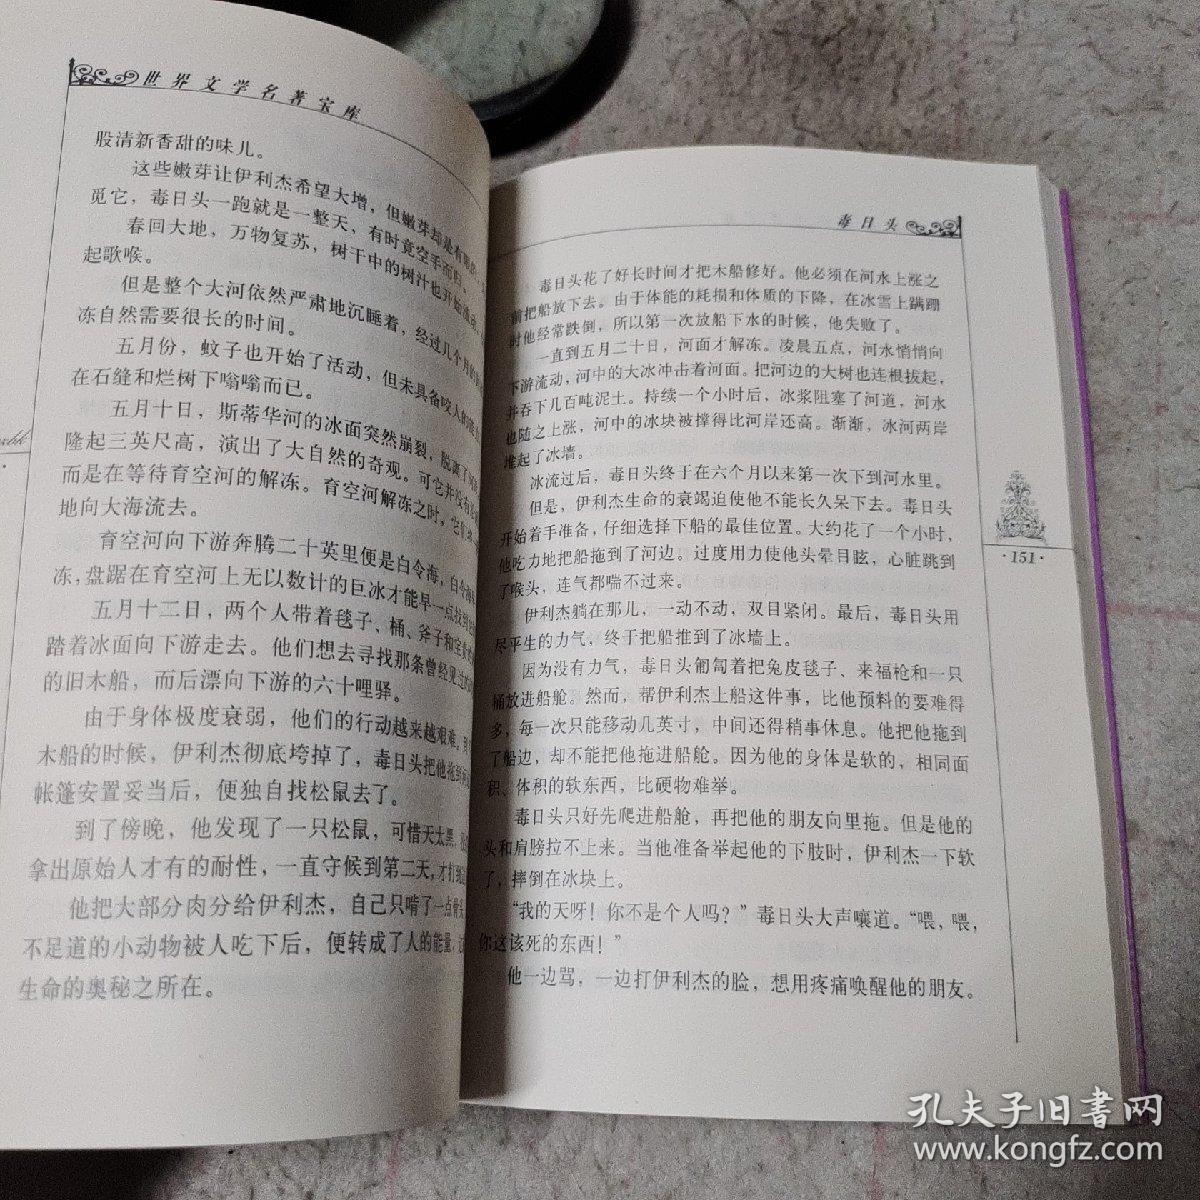 世界文学名著宝库
股清新香甜的味儿。
这些嫩芽让伊利杰希望大增，但嫩芽却是有限的
觅它，毒日头一跑就是一整天，有时竟空手而归。
春回大地，万物复苏，树干中的树汁也开始流动，
起歌喉。
但是整个大河依然严肃地沉睡着，经过几个月的
冻自然需要很长的时间。
五月份，蚊子也开始了活动，但未具备咬人的能
在石缝和烂树下嗡嗡而已。
五月十日，斯蒂华河的冰面突然崩裂，脱离了
隆起三英尺高，演出了大自然的奇观。可它并没有
而是在等待育空河的解冻。育空河解冻之时，它们
地向大海流去。
育空河向下游奔腾二十英里便是白令海，白令海
冻，盘踞在育空河上无以数计的巨冰才能早一点找到
五月十二日，两个人带着毯子、桶、斧子和宝贵
踏着冰面向下游走去。他们想去寻找那条曾经见过
的旧木船，而后漂向下游的六十哩驿。
由于身体极度衰弱，他们的行动越来越艰难。到
木船的时候，伊利杰彻底垮掉了，毒日头把他拖到
帐篷安置妥当后，便独自找松鼠去了。
到了傍晚，他发现了一只松鼠，可惜天太黑，
拿出原始人才有的耐性，一直守候到第二天，才打到
他把大部分肉分给伊利杰，自己只啃了一点骨头
不足道的小动物被人吃下后，便转成了人的能量，这
生命的奥秘之所在。
毒日头
毒日头花了好长时间才把木船修好。他必须在河水上涨之
前把船放下去。由于体能的耗损和体质的下降，在冰雪上蹒跚
时他经常跌倒，所以第一次放船下水的时候，他失败了。
一直到五月二十日，河面才解冻。凌晨五点，河水悄悄向
下游流动，河中的大冰冲击着河面。把河边的大树也连根拔起，
并吞下几百吨泥土。持续一个小时后，冰浆阻塞了河道，河水
也随之上涨，河中的冰块被撑得比河岸还高。渐渐，冰河两岸
堆起了冰墙。
冰流过后，毒日头终于在六个月以来第一次下到河水里。
但是，伊利杰生命的衰竭迫使他不能长久呆下去。毒日头
开始着手准备，仔细选择下船的最佳位置。大约花了一个小时，
他吃力地把船拖到了河边。过度用力使他头晕目眩，心脏跳到
了喉头，连气都喘不过来。
伊利杰躺在那儿，一动不动，双目紧闭。最后，毒日头用
尽平生的力气，终于把船推到了冰墙上。
因为没有力气，毒日头匍匐着把兔皮毯子、来福枪和一只
桶放进船舱。然而，帮伊利杰上船这件事，比他预料的要难得
多，每一次只能移动几英寸，中间还得稍事休息。他把他拖到
了船边，却不能把他拖进船舱。因为他的身体是软的，相同面
积、体积的软东西，比硬物难举。
毒日头只好先爬进船舱，再把他的朋友向里拖。但是他的
头和肩膀拉不上来。当他准备举起他的下肢时，伊利杰一下软
了，摔倒在冰块上。
“我的天呀！你不是个人吗？”毒日头大声嚷道。“喂，喂，
你这该死的东西！”
他一边骂，一边打伊利杰的脸，想用疼痛唤醒他的朋友。
·151·
孔夫子旧书网
www.kongfz.com